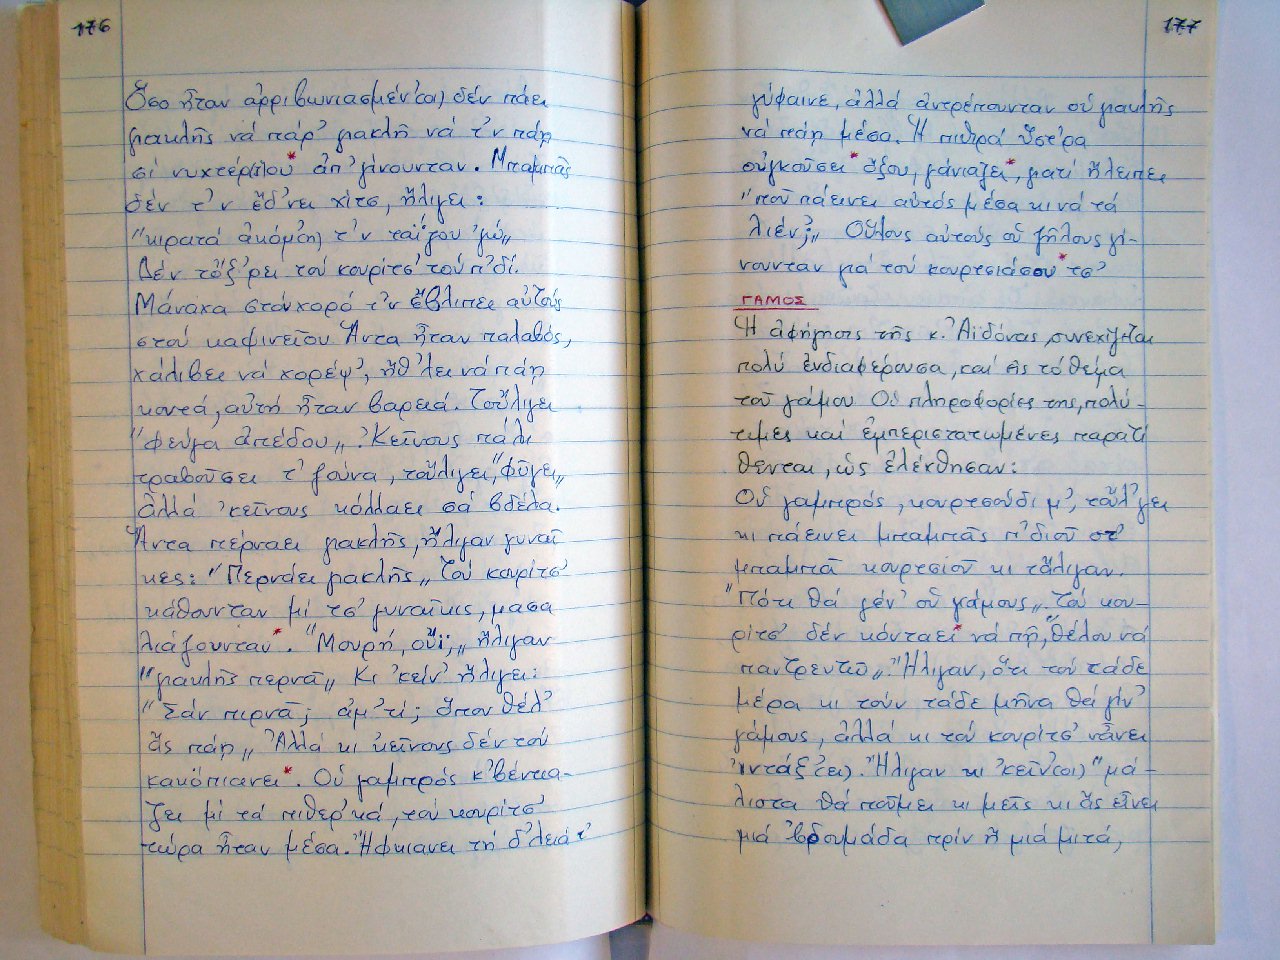 176
Ὅσο ἦταν ἀρριβωνιασμέν'(οι) δέν πάει
γιακλῆς νά πάρ' γιακλῆ νά τ'ν πάῃ
σί νυχτέρ(ι)ου* ἀπ' γίνουνταν. Μπαμπᾶς
δέν τ'ν ἔδ'νει χίτσ, ἤλιγει:
"κιρατά ἀκόμ(η) τ'ν ταΐζου 'γώ„
Δέν τὄξ'ρει τού κουρίτσ' τού π'δί.
Μάναχα στόν χορό τ'ν ἔβλιπει αὐτούς
στού καφινεῖου. Ἄντα ἦταν παλαβός,
χάλιβει νά χορέψ', ἤθ'λει νά πάῃ
κοντά, αὐτή ἦταν βαρειά. Τοὔλιγει
"φεύγα ἀπέδου„. 'Κεῖνους πάλι
τραβοῦσει τ' ζούνα, τοὔλιγει, "φῦγει„
ἀλλά 'κεῖνους κόλλαει σά βδέλα.
Ἄντα πέρναει γιακλῆς, ἤλιγαν γυναῖ
κες: "Περνάει γιακλῆς„ Τού κουρίτσ'
κάθουνταν μί τσ' γυναῖκις, μασα
λιάζουνταν*. "Μουρή, οὔϊ,„ ἤλιγαν
"γιακλῆς περνᾶ„ Κι 'κείν' ἤλιγει:
"Σάν πιρνᾶ; ἀμ' τί; ὅπου θέλ'
ἄς πάῃ„ Ἀλλά κι 'κεῖνους δέν τού
κακόπιανει*. Οὑ γαμπρός κ'βέντια-
ζει μί τά πιθερ'κά, τού κουρίτσ'
τώρα ἦταν μέσα. Ἤφκιανει τή δ'λειά τ'
177
γύφαινε, ἀλλά ἀντρέπουνταν οὑ γιακλῆς
νά πάῃ μέσα. Ἡ πιθρά ὕστερα
οὑγκοῦσει* ὄξου, γάνιαζει*, γιατί ἤλειπει
"ποῦ πάεινει αὐτός μέσα κι νά τά
λιέν';„ Οὕλους αὐτούς οὑ ζῆλους γί-
νουνταν γιά τού κουρτσιάσου* τσ'
ΓΑΜΟΣ
Ἡ ἀφήγησις τῆς κ. Ἀϊδόνας, συνεχίζεται
πολύ ἐνδιαφέρουσα, καί εἰς τό θέμα
τοῦ γάμου. Οἱ πληροφορίες της, πολύ-
τιμες καί ἐμπεριστατωμένες παρατί
θενται, ὡς ἐλέχθησαν:
Οὑ γαμπρός, κουρτσούδι μ', τοὔλ'γει
κι πάεινει μπαμπᾶς π'διοῦ στ'
μπαμπᾶ κουρτσιοῦ κι τἄλιγαν.
"Πότι θά γέν' οὑ γάμους„. Τού κου-
ρίτσ' δέν κόνταει* νά πῇ, "θέλου νά
παντρευτῶ„. Ἤλιγαν, ὅτι τού τάδε
μέρα κι τούν τάδε μῆνα θά γίν'
γάμους, ἀλλά κι τού κουρίτσ' νἆνει
'ντάξ'(ει). Ἤλιγαν κι 'κεῖν'(οι) "μά-
λιστα θά ποῦμει κι μεῖς κι ἄς εἶνει
μιά 'βδουμάδα πρίν ἤ μιά μιτά,